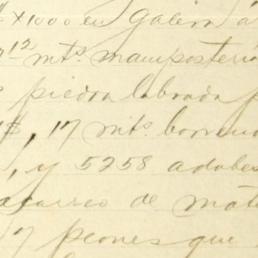 x 1000 en galera á
12 mts. mampostería
piedra labrada
$, 17 mts. barren
, y 5258 adobes
acarreo de mate
7 peones que